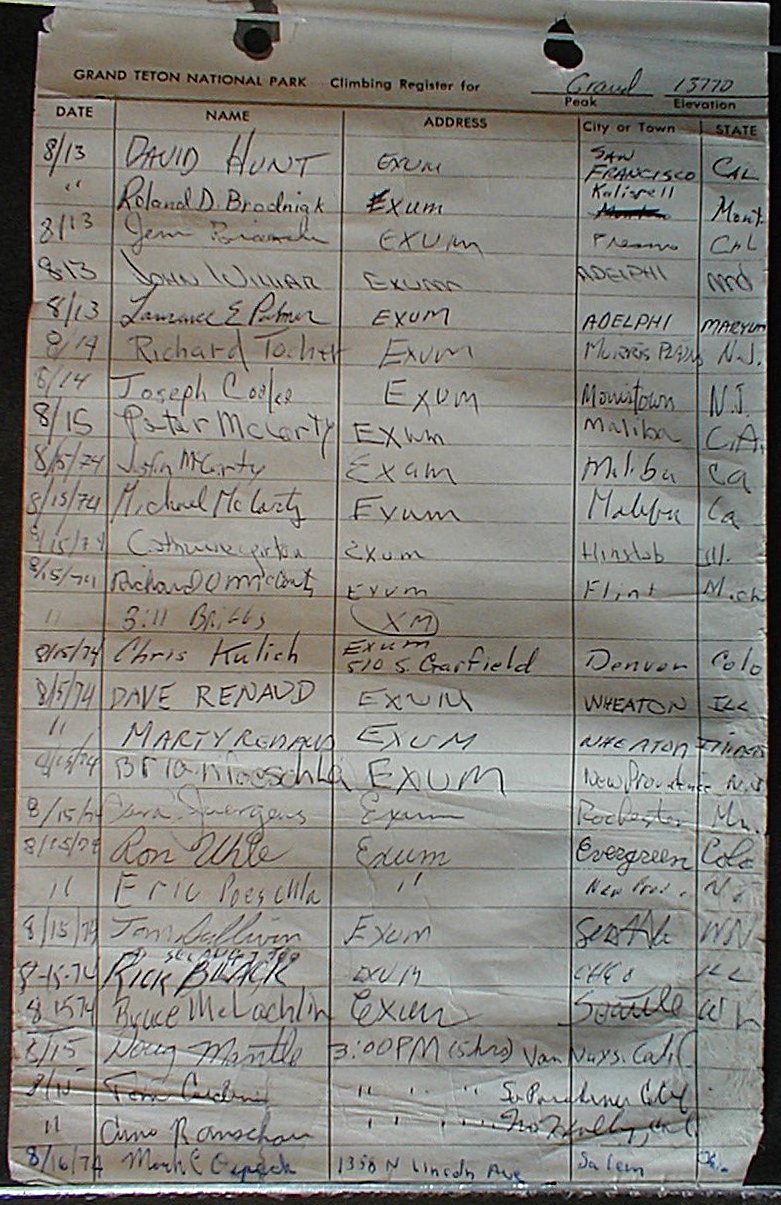 GRAND TETON NATIONAL PARK Climbing Register for Grand 13770
Peak Elevation
DATE NAME ADDRESS City or Town STATE
8/13 DAVID HUNT EXUM SAN FRANCISCO CAL
" Roland D. Brodnick EXUM Kalispell Mont.
8/13 EXUM Fresno CAL
8/13 JOHN EXUM ADELPHI Md
8/13 Lawrence E Palmer EXUM ADELPHI
8/14 Richard EXUM MORRIS PLAINS N.J.
8/14 Joseph EXUM Morristown N.J.
8/15 Peter McCarty EXUM Malibu C.A.
8/15/74 John McCarty Exum Malibu Ca
8/15/74 Michael McCarty Exum Malibu Ca
8/15/74 Exum Ill.
8/15/74 Richard Exum Flint Mich
" Bill BRIGGS XM
8/15/74 Chris Kulich Exum 510 S. Garfield Denver Colo
8/15/74 DAVE RENAUD EXUM WHEATON ILL
" MARTY RENAUD EXUM WHEATON ILLINOIS
8/15/74 Brian Poeschla EXUM New Providence N.J.
8/15/74 Juergens Exum Rochester Mn.
8/15/74 Ron Uhle Exum Evergreen Colo
" Eric Poeschla " New Prov. NJ
8/15/74 Tom Sullivan Exum Seattle WN
8-15-74 RICK BLACK EXUM
8/15/74 Bruce McLachlin Exum Seattle
8/15 Doug Mantle 3:00PM (5hrs) Van Nuys. Calif.
8/15 " " " " So Pasadena Calif
" Arno " " " " No Holly, Cal
8/16/74 Mark C 1358 N Lincoln Ave Salem